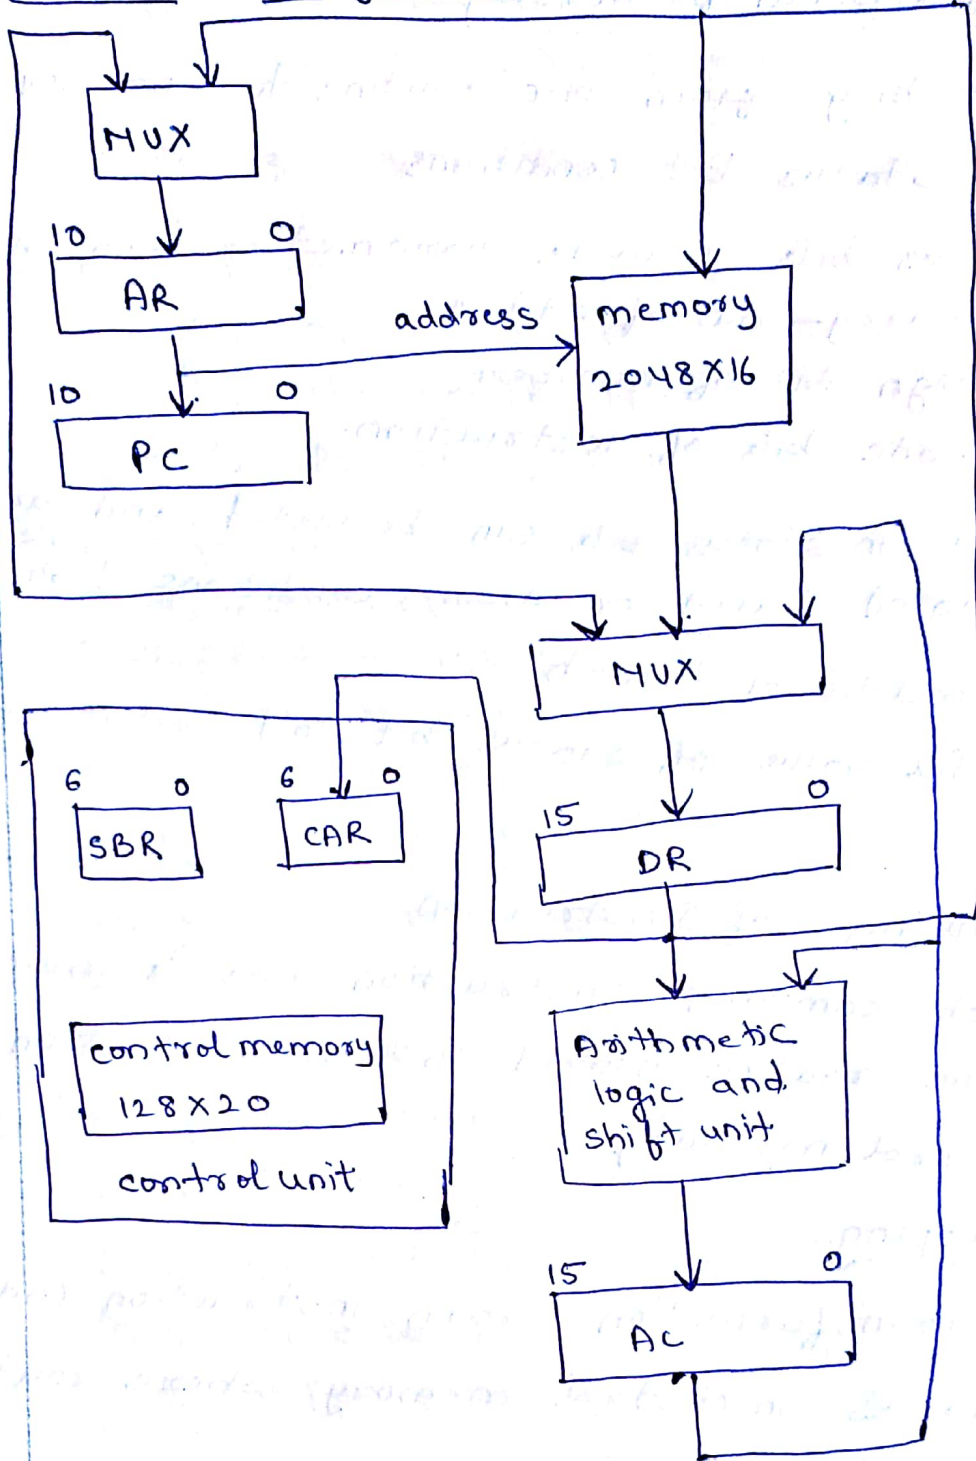 MUX
10 0
AR
address
memory
2048X16
10 0
PC
MUX
6 0
SBR
6 0
CAR
15 0
DR
control memory
128X20
control unit
Arithmetic
logic and
shift unit
15 0
AC